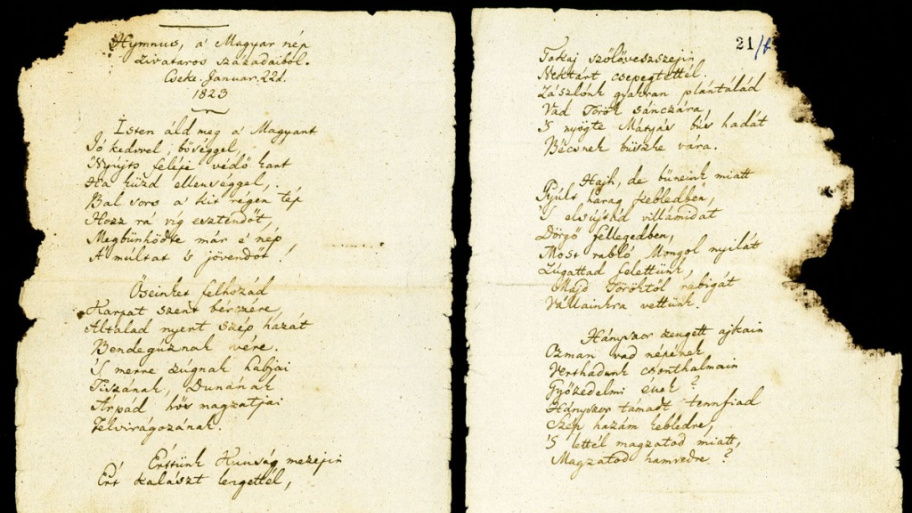 Hymnus, a' Magyar nép
zivataros századaiból.
Cseke. Januar. 22d.
1823
Isten áld meg a' Magyart
Jó kedvvel, bőséggel,
Nyújts feléje védő kart
Ha küzd ellenséggel,
Bal sors a' kit régen tép
Hozz rá víg esztendőt,
Megbűnhödte már e' nép
A' multat 's jövendőt!
Őseinket felhozád
Kárpát szent bérczére,
Általad nyert szép hazát
Bendegúznak vére.
'S merre zúgnak habjai
Tiszának, Dunának
Árpád hős magzatjai
Felvirágozának.
Értünk Kunság mezejin
Ért kalászt lengettél,
21/b
Tokaj szőlővesszejin
Nektárt csepegtettél.
Zászlónk gyakran plántálád
Vad Török sánczára,
'S nyögte Mátyás bús hadát
Bécsnek büszke vára.
Hajh, de bűneink miatt
Gyúlt harag kebledben,
'S elsújtád villámidat
Dörgő fellegedben,
Most rabló Mongol nyilát
Zúgattad felettünk,
Majd Töröktől rabigát
Vállainkra vettünk.
Hányszor zengett ajkain
Ozman vad népének
Vert hadunk csonthalmain
Győzedelmi ének?
Hányszor támadt tennfiad
Szép hazám kebledre,
'S lettél magzatod miatt,
Magzatod hamvedre?